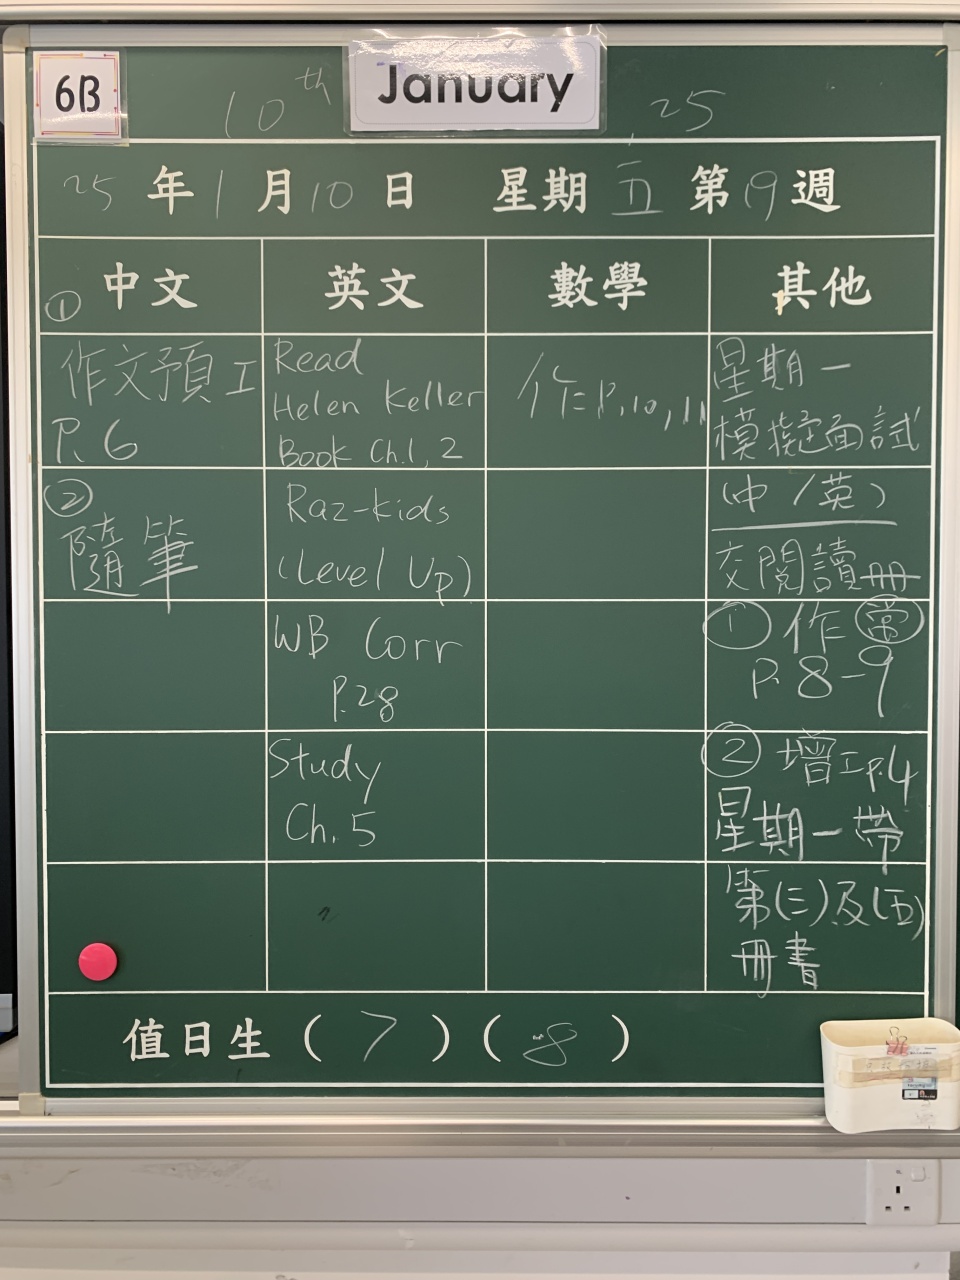 6B
10th January 25
25年1月10日 星期五 第19週
中文 英文 數學 其他
①
作文預工
P.6
②
隨筆
Read
Helen Keller
Book Ch.1, 2
Raz-kids
(Level Up)
WB Corr
P.28
Study
Ch. 5
作:P.10,11
星期一
模擬面試
(中/英)
交閱讀冊
① 作常
P. 8-9
② 增工p.4
星期一帶
第(三)及(五)
冊書
值日生(7)(8)